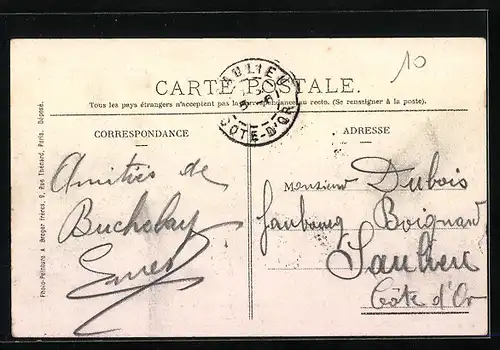 10
SAULIEU
CÔTE-D'OR
CARTE POSTALE.
Tous les pays étrangers n'acceptent pas la correspondance au recto. (Se renseigner à la poste).
CORRESPONDANCE
ADRESSE
Photo-Peinture A. Breger frères, 9, Rue Thénard, Paris. Déposé.
Amitiés de
Ernest
Monsieur Dubois
faubourg
Saulieu
Côte d'Or